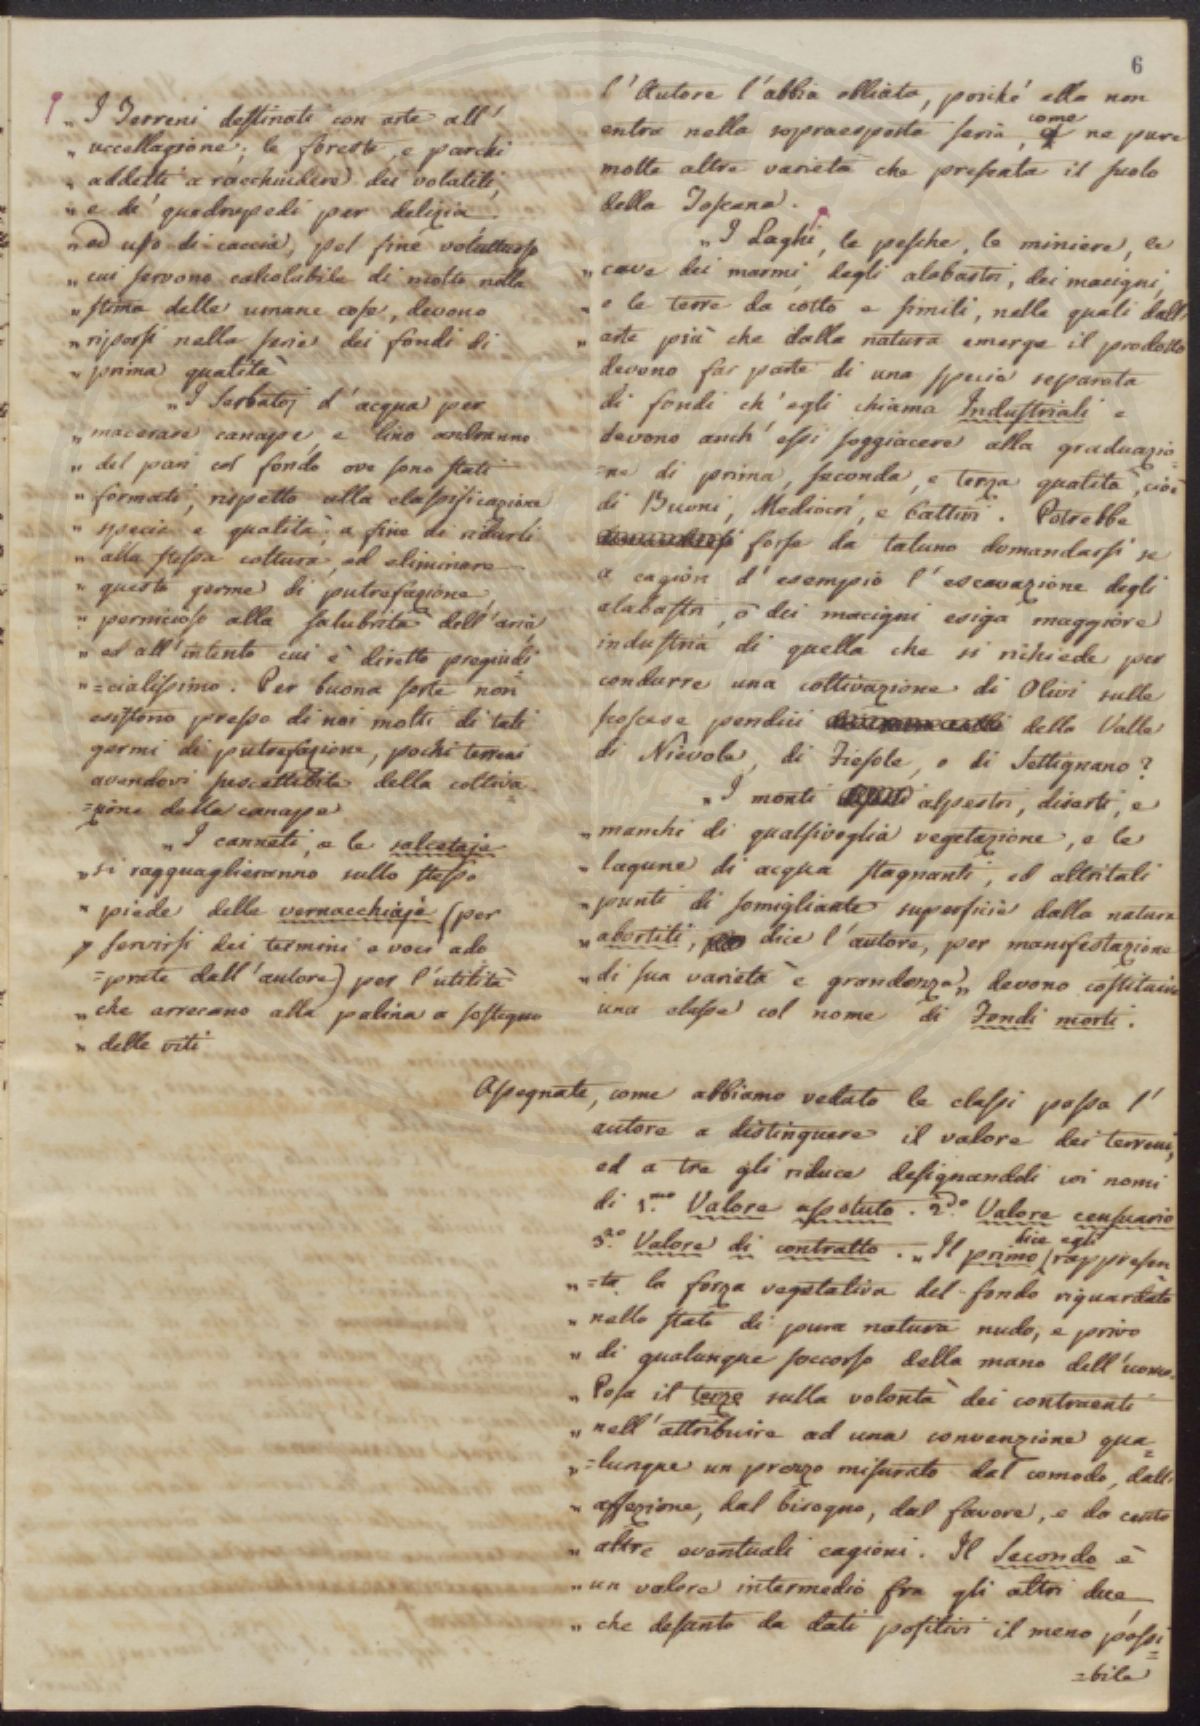 6
„ I Terreni destinati con arte all'
„ uccellagione; le foreste, e parchi
„ addetti a racchiudere dei volatili,
„ e de' quadrupedi per delizia
„ ed uso di caccia, pel fine voluttuoso
„ cui servono calcolabile di molto nella
„ stima delle umane cose, devono
„ riporsi nella serie dei fondi di
„ prima qualità
„ I Serbatoj d'acqua per
„ macerare canape, e lino andranno
„ del pari col fondo ove sono stati
„ formati, rispetto alla classificazione
„ specie e qualità; a fine di ridurli
„ alla stessa coltura, ed eliminare
„ questo germe di putrefazione,
„ pernicioso alla salubrità dell'aria
„ ed all'intento cui è diretto pregiudi
„ =cialissimo. Per buona sorte non
esistono presso di noi molti di tali
germi di putrefazione, pochi terreni
avendovi suscettibile della coltiva
=zione della canape
„ I canneti, e le salcetaje
„ si ragguaglieranno sullo stesso
„ piede delle vernacchiaje (per
servirsi dei termini e voci ado
=prate dall'autore) per l'utilità
„ che arrecano alla palina a sostegno
„ delle viti
l'Autore l'abbia obliata, poiché ella non
entra nella sopraesposta serie, come ne pure
molte altre varietà che presenta il suolo
della Toscana.
„ I Laghi, le pesche, le miniere, le
„ cave dei marmi, degli alabastri, dei macigni,
„ e le terre da cotto e simili, nelle quali dall'
„ arte più che dalla natura emerge il prodotto
devono far parte di una specie separata
di fondi ch'egli chiama Industriali e
devono anch'essi soggiacere alla graduazio
=ne di prima, seconda, e terza qualità, cioè
di Buoni, Mediocri, e Cattivi. Potrebbe
forse da taluno domandarsi se
a cagion d'esempio l'escavazione degli
alabastri, o dei macigni esiga maggiore
industria di quella che si richiede per
condurre una coltivazione di Olivi sulle
scoscese pendici della Valle
di Nievole, di Fiesole, o di Settignano?
„ I monti alpestri, diserti, e
„ manchi di qualsivoglia vegetazione, e le
„ lagune di acqua stagnanti, ed altri tali
„ punti di somigliante superficie dalla natura
„ abortiti, dice l'autore, per manifestazione
„ di sua varietà e grandezza „ devono costituire
una classe col nome di Fondi morti.
Assegnate, come abbiamo veduto le classi passa l'
autore a distinguere il valore dei terreni,
ed a tre gli riduce designandoli coi nomi
di 1.mo Valore assoluto. 2.do Valore censuario
3.zo Valore di contratto. „ Il primo (dice egli) rappresen
„ =ta la forza vegetativa del fondo riguardato
„ nello stato di pura natura nudo, e privo
„ di qualunque soccorso della mano dell'uomo.
„ Posa il terzo sulla volontà dei contraenti
„ nell'attribuire ad una convenzione qua=
„ =lunque un prezzo misurato dal comodo, dall'
„ affezione, dal bisogno, dal favore, e da cento
„ altre eventuali cagioni. Il Secondo è
„ un valore intermedio fra gli altri due
„ che desunto da dati positivi il meno possi=
=bile